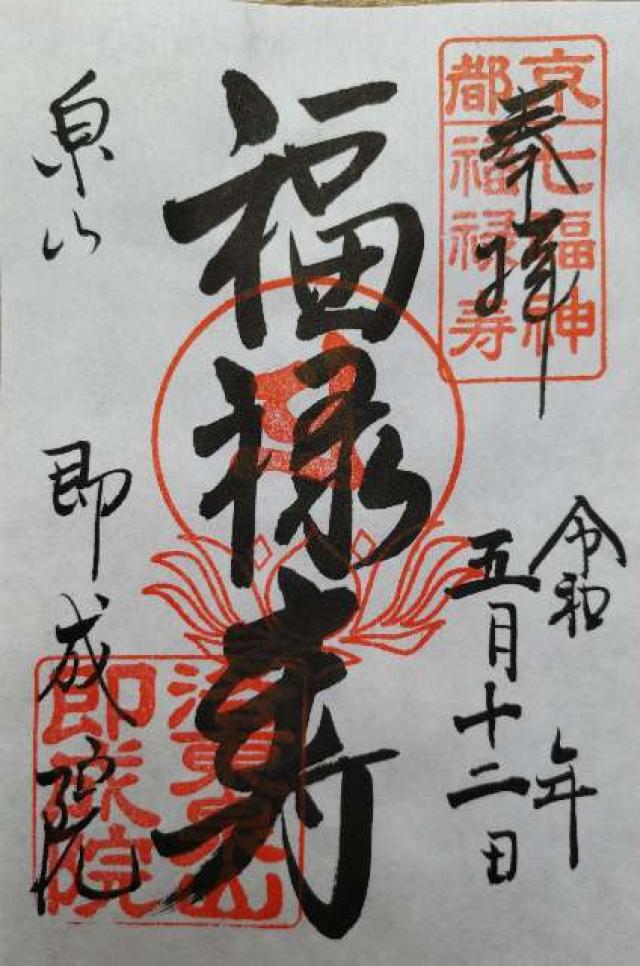 奉拝
京都
七福神
福禄寿
令和 年
五月十二日
福禄寿
泉山 即成院
即成院